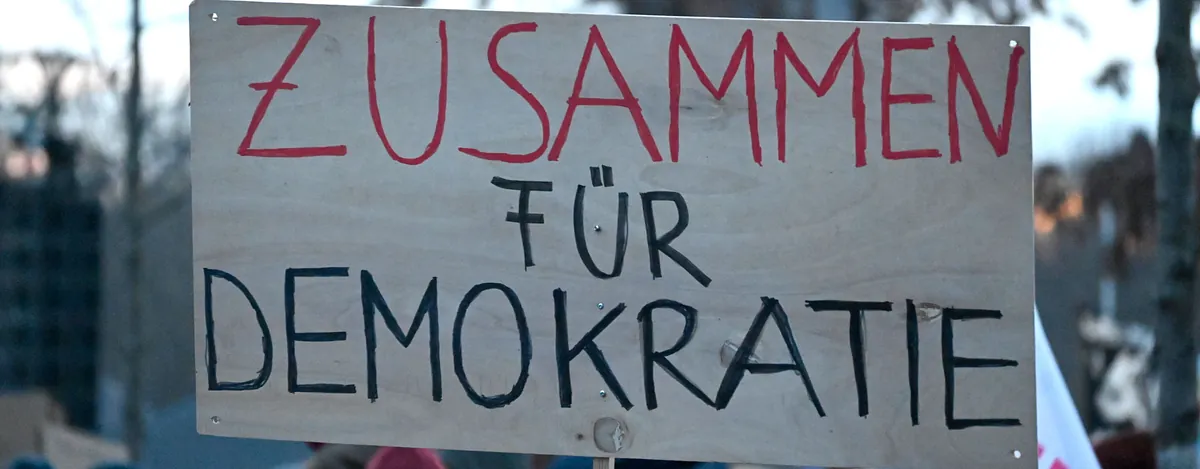 ZUSAMMEN
FÜR
DEMOKRATIE